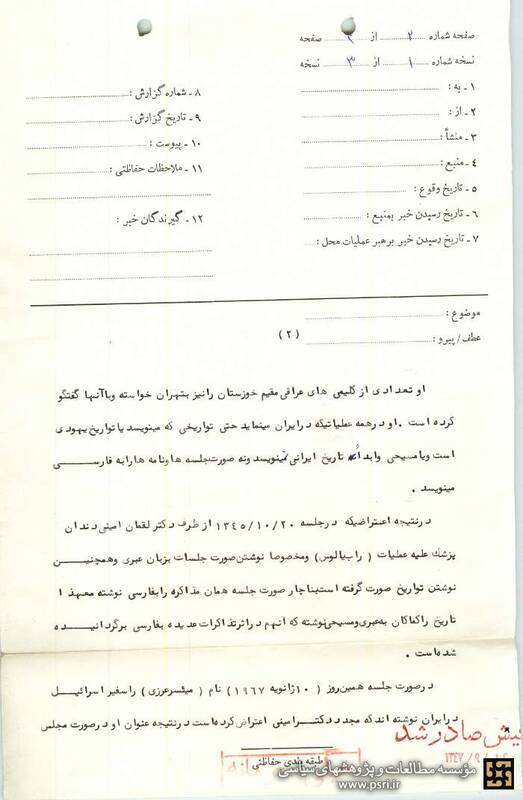 صفحه شماره ۲ از ۲ صفحه
نسخه شماره ۱ از ۳ نسخه
۱ - به :
۲ - از :
۳ - منشأ :
۴ - منبع :
۵ - تاریخ وقوع :
۶ - تاریخ رسیدن خبر بمنبع :
۷ - تاریخ رسیدن خبر برهبر عملیات محل :
۸ - شماره گزارش :
۹ - تاریخ گزارش :
۱۰ - پیوست :
۱۱ - ملاحظات حفاظتی :
۱۲ - گیرندگان خبر :
موضوع :
عطف/پیرو :
(۲)
او تعدادی از کلیمی های عراقی مقیم خوزستان را نیز بتهران خواسته وباآنها گفتگو
کرده است . او در همه عملیاتیکه در ایران مینماید حتی تواریخی که مینویسد یا تواریخ یهودی
است ویا مسیحی وابداً تاریخ ایرانی نمینویسد ونه صورتجلسه ها ونامه ها را به فارسی
مینویسد .
در نتیجه اعتراضیکه در جلسه ۱۳۴۵/۱۰/۲۰ از طرف دکتر لقمان امینی دندان
پزشک علیه عملیات ( راب یالوس ) ومخصوصا نوشتن صورت جلسات بزبان عبری وهمچنین
نوشتن تواریخ صورت گرفته است بناچار صورت جلسه همان مذاکره را بفارسی نوشته معهذا
تاریخ را کماکان به عبری ومسیحی نوشته که آنهم در اثر تذاکرات عدیده بفارسی برگردانیده
شده است .
در صورت جلسه همین روز ( ۱۰ ژانویه ۱۹۶۷ ) نام ( میئسرعزری ) را سفیر اسرائیل
در ایران نوشته اند که مجدد دکتر امینی اعتراض کرده است در نتیجه عنوان او در صورت مجلس
فیش صادر شد
طبقه بندی حفاظتی
مؤسسه مطالعات و پژوهشهای سیاسی
www.psri.ir